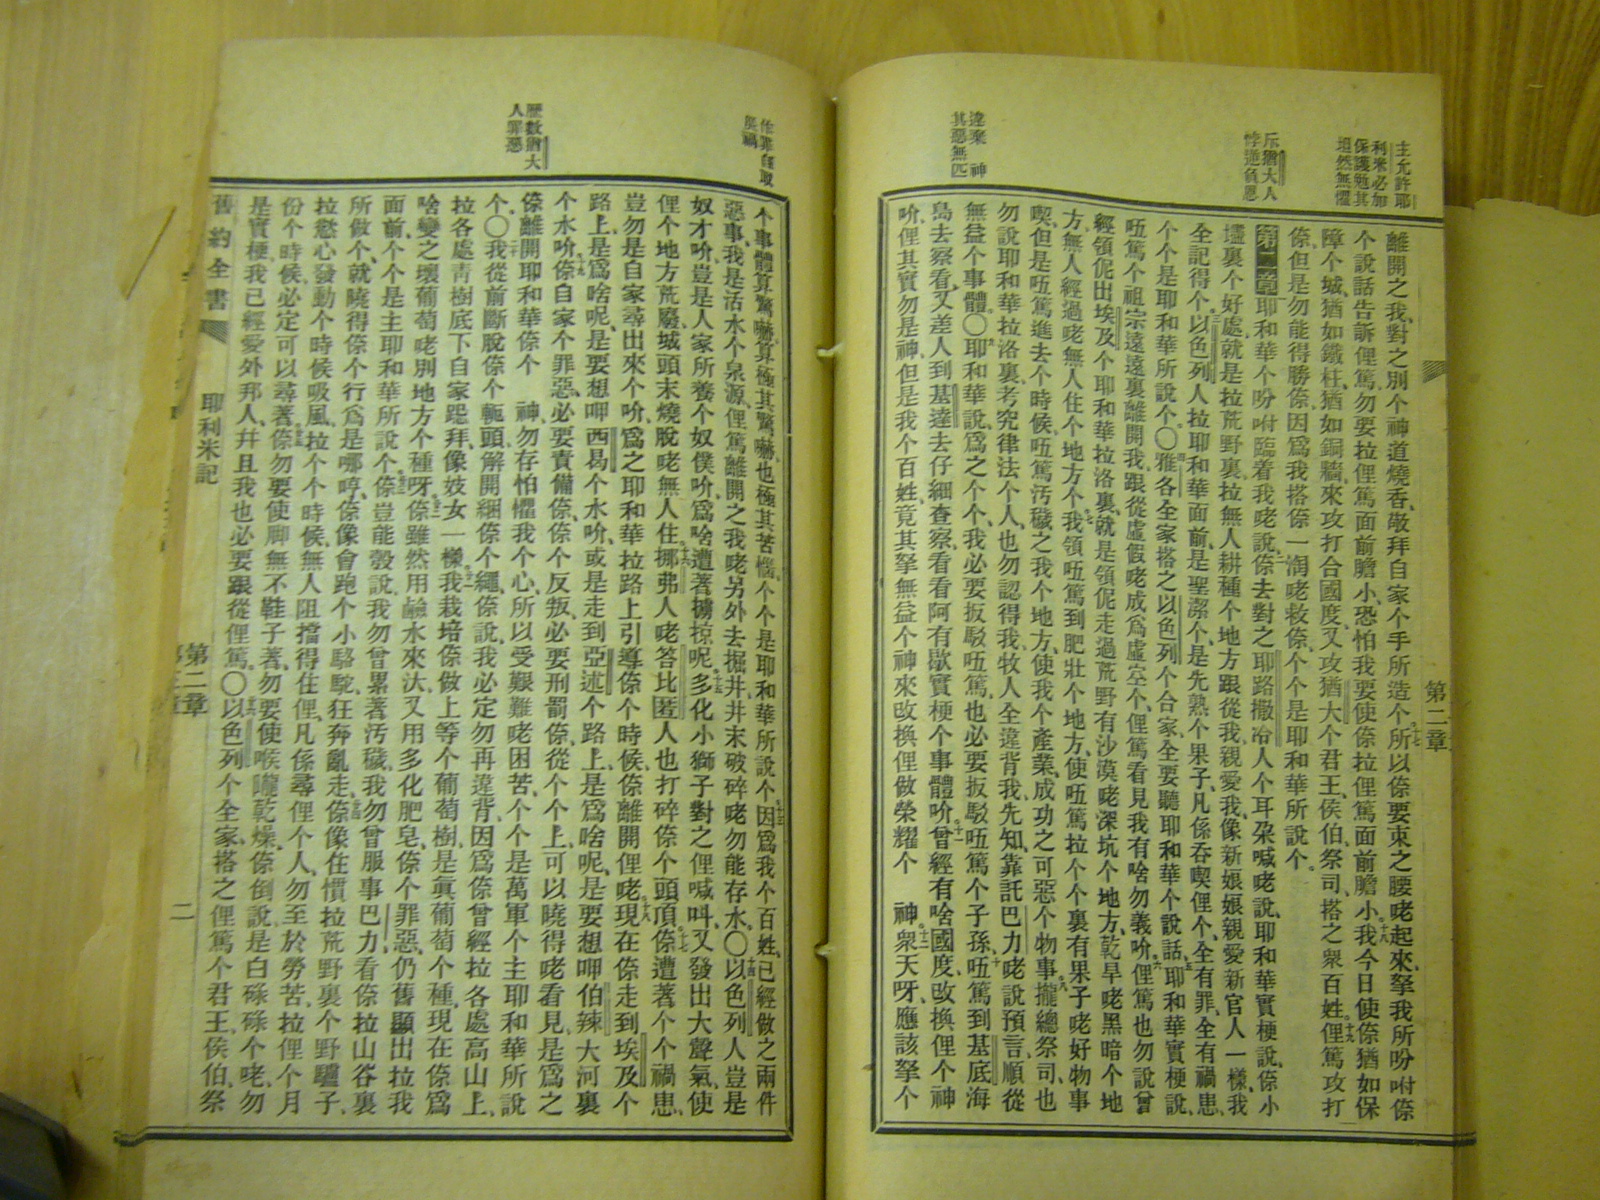 主允許耶
利米必加
保護勉其
坦然無懼
斥猶大人
悖逆負恩
違棄 神
其惡無匹
第二章
離開之我、對之別个神道燒香、敬拜自家个手所造个、所以㑚要束之腰咾起來、拏我所吩咐㑚
个說話告訴俚篤、勿要拉俚篤面前膽小、恐怕我要使㑚拉俚篤面前膽小、我今日使㑚猶如保
障个城、猶如鐵柱、猶如銅牆、來攻打合國度、又攻猶大个君王、侯伯、祭司、搭之衆百姓、俚篤攻打
㑚、但是勿能得勝㑚、因爲我搭㑚一淘咾救㑚个、个是耶和華所說个。
第二章 耶和華个吩咐臨着我咾說、㑚去對之耶路撒冷人个耳朶喊咾說、耶和華實梗說、㑚小
壚裏个好處、就是拉荒野裏、拉無人耕種个地方跟從我、親愛我、像新娘娘親愛新官人一樣、我
全記得个、以色列人拉耶和華面前、是聖潔个、是先熟个果子、凡係吞喫俚个、全有罪、全有禍患、
个个是耶和華所說个〇雅各全家搭之以色列个合家、全要聽耶和華个說話、耶和華實梗說、
㕶篤个祖宗遠遠裏離開我、跟從虛假咾成爲虛空个、俚篤看見我有啥勿義吤、俚篤也勿說、曾
經領伲出埃及个耶和華拉洛裏、就是領伲走過荒野、有沙漠咾深坑个地方、乾旱咾黑暗个地
方、無人經過咾無人住个地方个、我領㕶篤到肥壯个地方、使㕶篤拉个个裏有果子咾好物事
喫、但是㕶篤進去个時候、㕶篤汚穢之我个地方、使我个產業、成功之可惡个物事、攏總祭司也
勿說耶和華拉洛裏、考究律法个人、也勿認得我、牧人全違背我、先知、靠託巴力咾說預言、順從
無益个事體〇耶和華說、爲之个个、我必要扳駁㕶篤、也必要扳駁㕶篤个子孫、㕶篤到基底海
島去察看、又差人到基達去仔細查察、看看阿有歇實梗个事體吤、曾經有啥國度、改換俚个神
吤、俚其實勿是神、但是我个百姓、竟其拏無益个神來改換俚做榮耀个 神衆天呀、應該拏个
作罪自取
災禍
歷數猶大
人罪惡
个事體算驚嚇、算極其驚嚇、也極其苦惱、个个是耶和華所說个、因爲我个百姓、已經做之兩件
惡事、我是活水个泉源、俚篤離開之我咾另外去掘井、井末破碎咾勿能存水〇以色列人豈是
奴才吤、豈是人家所養个奴僕吤、爲啥遭著擄掠呢、多化小獅子對之俚喊呌、又發出大聲氣、使
俚个地方荒廢、城頭末燒脫咾無人住、挪弗人咾答比匿人也打碎㑚个頭頂、㑚遭著个个禍患、
豈勿是自家尋出來个吤、爲之耶和華拉路上引導㑚个時候、㑚離開俚咾、現在㑚走到埃及个
路上、是爲啥呢、是要想呷西曷个水吤、或是走到亞述个路上、是爲啥呢、是要想呷伯辣大河裏
个水吤、㑚自家个罪惡、必要責備㑚、㑚个反叛、必要刑罰㑚、從个个上、可以曉得咾看見、是爲之
㑚離開耶和華㑚个 神、勿存怕懼我个心、所以受艱難咾困苦、个个是萬軍个主耶和華所說
个〇我從前斷脫㑚个軛頭、解開綑㑚个繩、㑚說、我必定勿再違背、因爲㑚曾經拉各處高山上、
拉各處青樹底下自家跽拜、像妓女一樣、我栽培㑚做上等个葡萄樹、是眞葡萄个種、現在㑚爲
啥變之壞葡萄咾別地方个種呀、㑚雖然用鹼水來汏、又用多化肥皂、㑚个罪惡、仍舊顯出拉我
面前、个个是主耶和華所說个、㑚豈能彀說、我勿曾累著汚穢、我勿曾服事巴力、看㑚拉山谷裏
所做个、就曉得㑚个行爲是哪哼、㑚像會跑个小駱駝、狂奔亂走、㑚像住慣拉荒野裏个野驢子、
拉慾心發動个時候吸風、拉个个時候、無人阻擋得住俚、凡係尋俚个人、勿至於勞苦、拉俚个月
份个時候、必定可以尋著、㑚勿要使脚無不鞋子著、勿要使喉嚨乾燥、㑚倒說、是白碌碌个咾、勿
是實梗、我已經愛外邦人、幷且我也必要跟從俚篤〇以色列个全家、搭之俚篤个君王、侯伯、祭
舊約全書 耶利米記 第二章 二